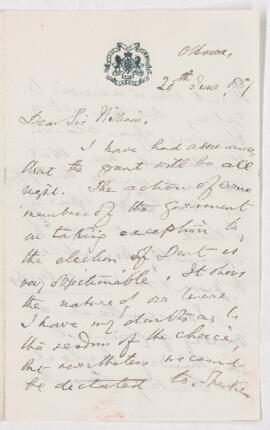 Ottawa,
20th June,
Dear Sir William,
I have had assurance
that the grant will be all
right. The action of some
members of the Government
in taking exception to
the election of is
very objectionable. It shows
the nature of our
I have my doubts as to
the wisdom of the choice,
but nevertheless we cannot
be dictated to.